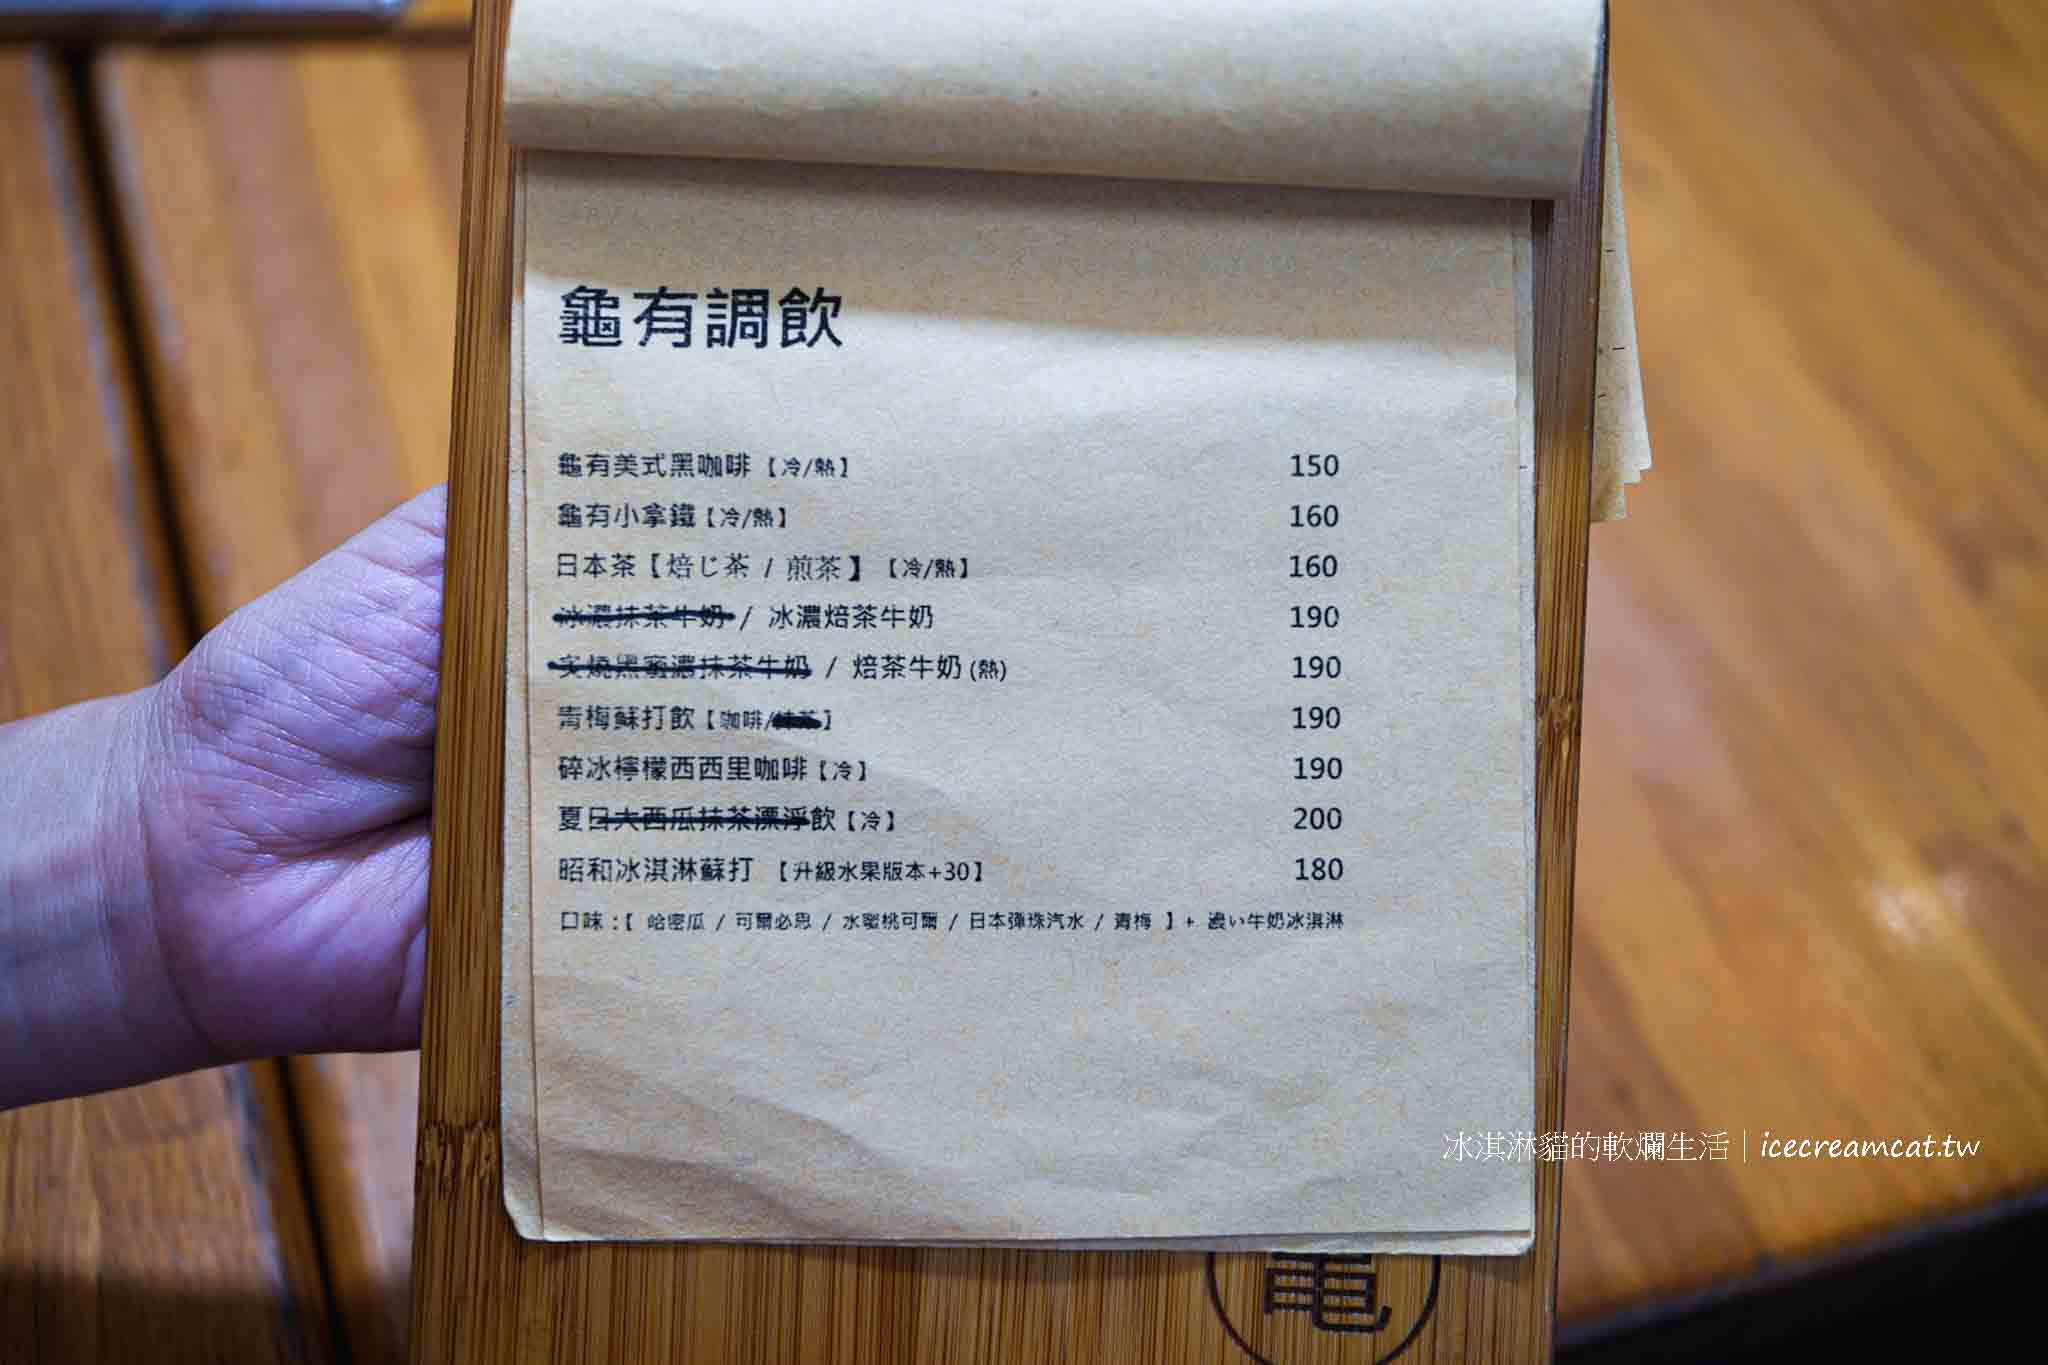 龜有調飲
龜有美式黑咖啡【冷/熱】 150
龜有小拿鐵【冷/熱】 160
日本茶【焙じ茶 / 煎茶】【冷/熱】 160
冰濃抹茶牛奶 / 冰濃焙茶牛奶 190
炙燒黑蜜濃抹茶牛奶 / 焙茶牛奶(熱) 190
青梅蘇打飲【咖啡/抹茶】 190
碎冰檸檬西西里咖啡【冷】 190
夏日大西瓜抹茶漂浮飲【冷】 200
昭和冰淇淋蘇打 【升級水果版本+30】 180
口味 :【 哈密瓜 / 可爾必思 / 水蜜桃可爾 / 日本彈珠汽水 / 青梅 】+ 濃い牛奶冰淇淋
冰淇淋貓的軟爛生活｜icecreamcat.tw